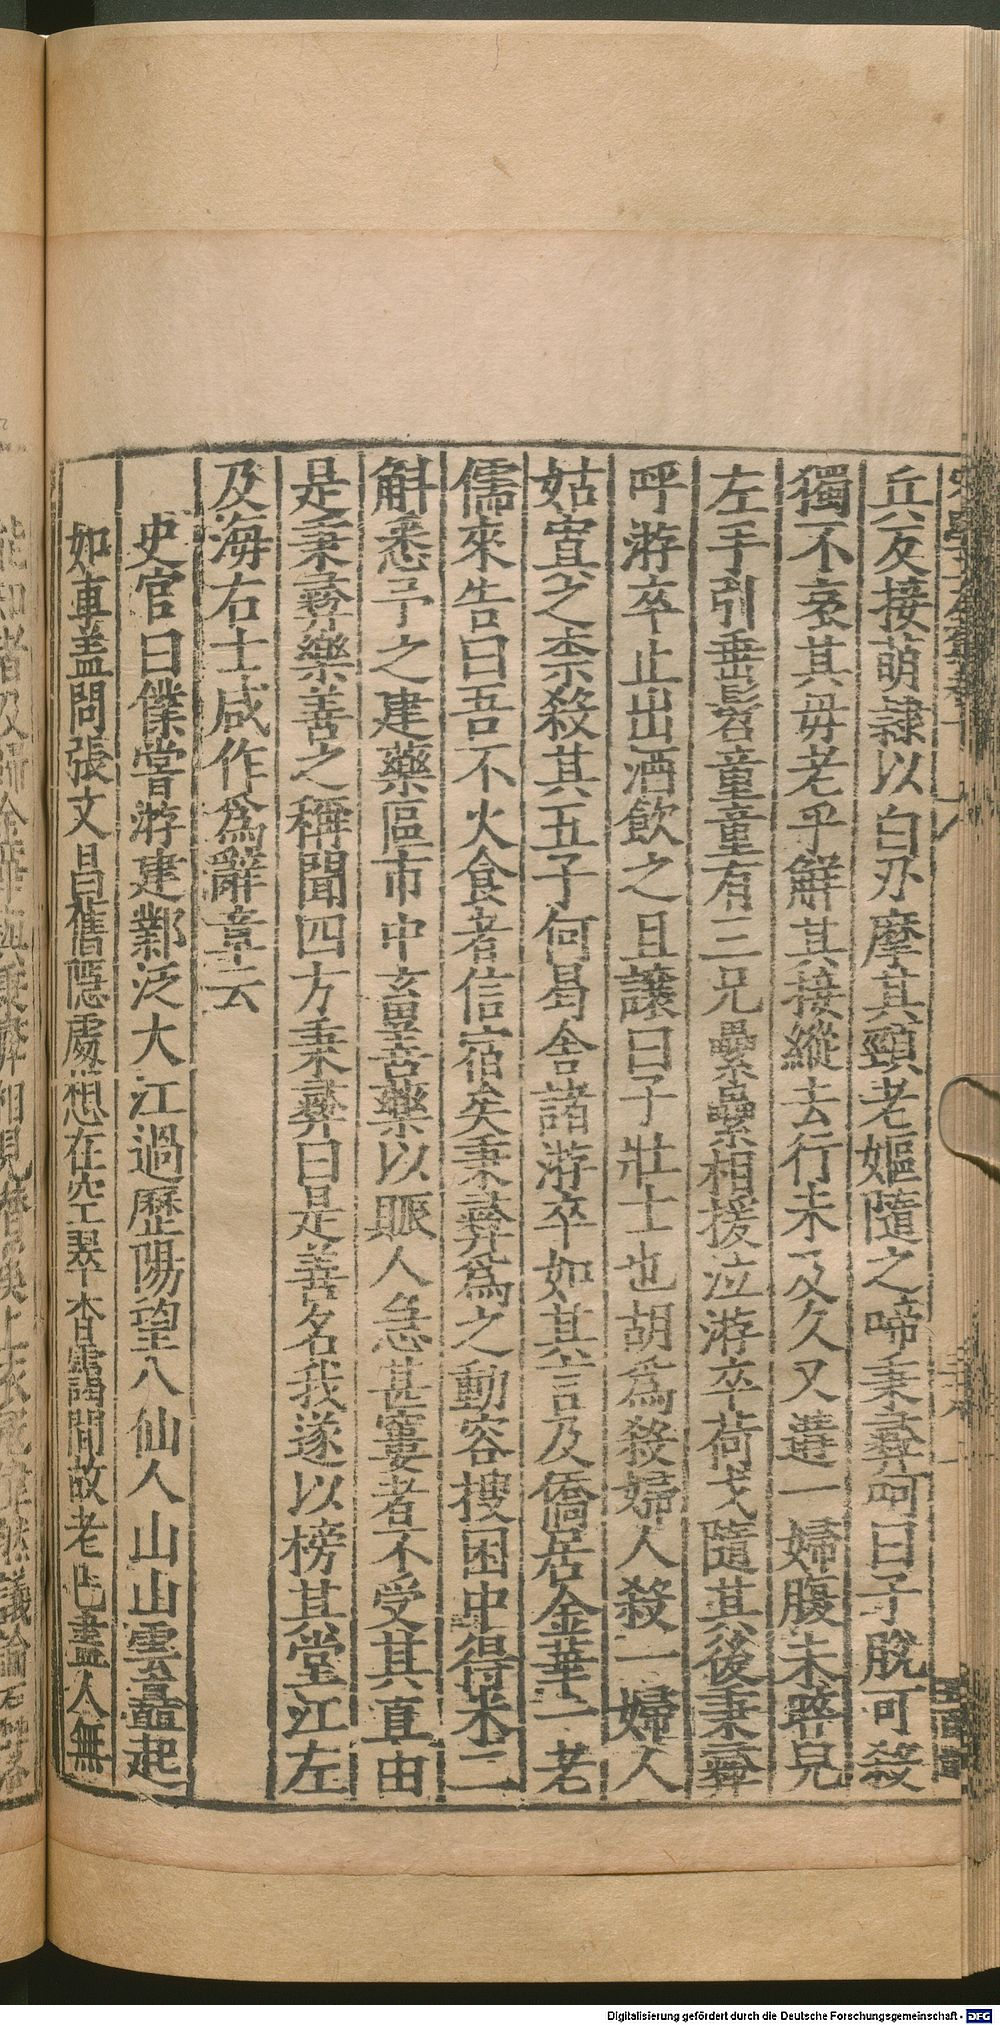 兵反接萌隸以白刃摩其頸老嫗隨之啼秉彞呵曰子脫可殺
獨不哀其毋老乎解其接縱去行未及久又遘一婦腹未踣兒
左手引垂髫童童有三兄纍纍相援泣游卒荷戈隨其後秉彞
呼游卒止出酒飲之且讓曰子壯士也胡爲殺婦人殺一婦人
姑寘之柰殺其五子何曷舍諸游卒如其言及僑居金華一老
儒來告曰吾不火食者信宿矣秉彞爲之動容搜困中得米二
斛悉予之建藥區市中玄畺善藥以賑人急甚窶者不受其直由
是秉彞樂善之稱聞四方秉彞曰是善名我遂以榜其堂江左
及海右士咸作爲辭章云
史官曰僕甞游建鄴泛大江過歷陽望八仙人山山雲矗起
如車盖問張文昌舊隱處想在空翠杳靄間故老已盡人無
Digitalisierung gefördert durch die Deutsche Forschungsgemeinschaft - DFG